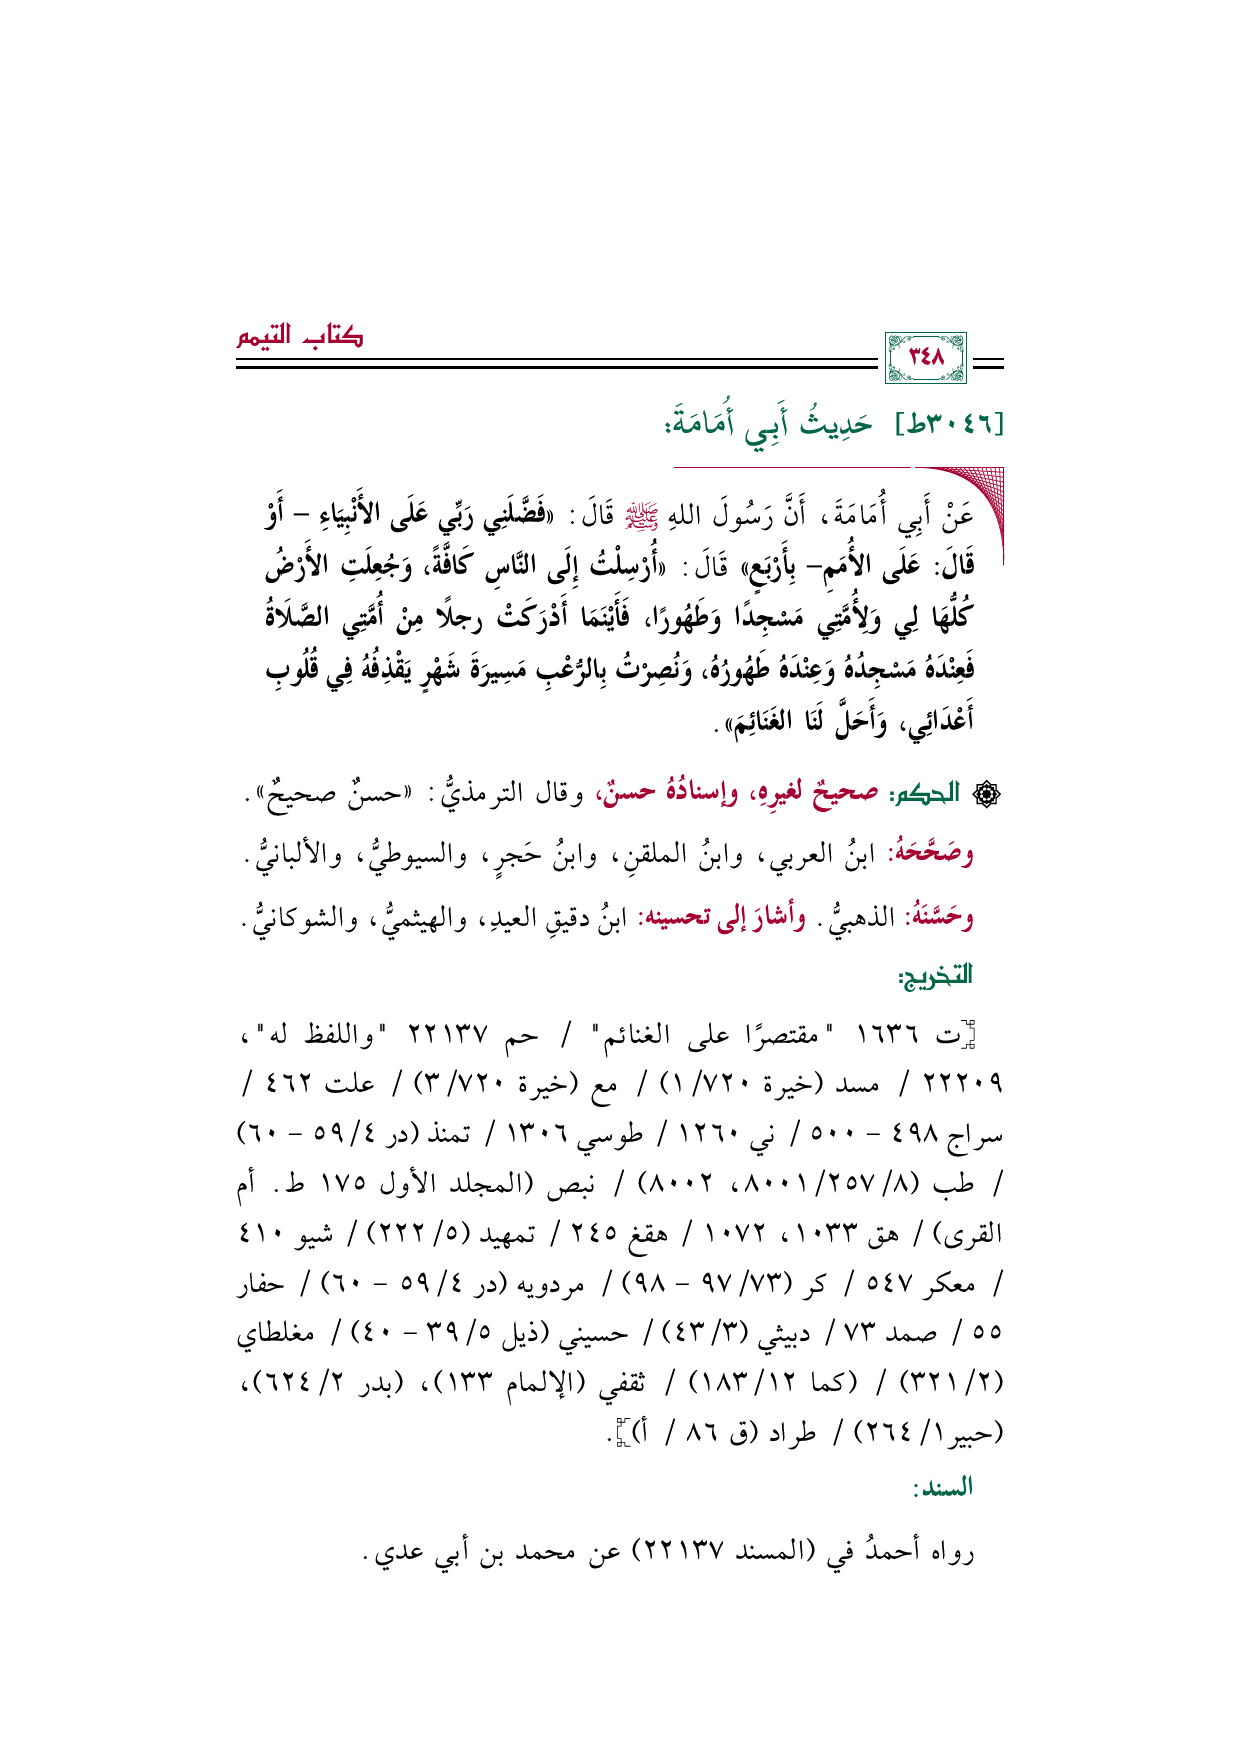 كتاب التيمم
٣٤٨
[٣٠٤٦ط] حَدِيثُ أَبِي أُمَامَةَ:
عَنْ أَبِي أُمَامَةَ، أَنَّ رَسُولَ اللهِ ﷺ قَالَ: «فَضَّلَنِي رَبِّي عَلَى الأَنْبِيَاءِ – أَوْ
قَالَ: عَلَى الأُمَمِ– بِأَرْبَعٍ» قَالَ: «أُرْسِلْتُ إِلَى النَّاسِ كَافَّةً، وَجُعِلَتِ الأَرْضُ
كُلُّهَا لِي وَلِأُمَّتِي مَسْجِدًا وَطَهُورًا، فَأَيْنَمَا أَدْرَكَتْ رجلًا مِنْ أُمَّتِي الصَّلَاةُ
فَعِنْدَهُ مَسْجِدُهُ وَعِنْدَهُ طَهُورُهُ، وَنُصِرْتُ بِالرُّعْبِ مَسِيرَةَ شَهْرٍ يَقْذِفُهُ فِي قُلُوبِ
أَعْدَائِي، وَأَحَلَّ لَنَا الغَنَائِمَ».
الحكم: صحيحٌ لغيرِهِ، وإسنادُهُ حسنٌ، وقال الترمذيُّ: «حسنٌ صحيحٌ».
وصَحَّحَهُ: ابنُ العربي، وابنُ الملقنِ، وابنُ حَجرٍ، والسيوطيُّ، والألبانيُّ.
وحَسَّنَهُ: الذهبيُّ. وأشارَ إلى تحسينه: ابنُ دقيقِ العيدِ، والهيثميُّ، والشوكانيُّ.
التخريج:
[ت ١٦٣٦ "مقتصرًا على الغنائم" / حم ٢٢١٣٧ "واللفظ له"،
٢٢٢٠٩ / مسد (خيرة ٧٢٠/ ١) / مع (خيرة ٧٢٠/ ٣) / علت ٤٦٢ /
سراج ٤٩٨ – ٥٠٠ / ني ١٢٦٠ / طوسي ١٣٠٦ / تمنذ (در ٤/ ٥٩ – ٦٠)
/ طب (٨/ ٢٥٧/ ٨٠٠١، ٨٠٠٢) / نبص (المجلد الأول ١٧٥ ط. أم
القرى) / هق ١٠٣٣، ١٠٧٢ / هقغ ٢٤٥ / تمهيد (٥/ ٢٢٢) / شيو ٤١٠
/ معكر ٥٤٧ / كر (٧٣/ ٩٧ – ٩٨) / مردويه (در ٤/ ٥٩ – ٦٠) / حفار
٥٥ / صمد ٧٣ / دبيثي (٣/ ٤٣) / حسيني (ذيل ٥/ ٣٩ – ٤٠) / مغلطاي
(٢/ ٣٢١) / (كما ١٢/ ١٨٣) / ثقفي (الإلمام ١٣٣)، (بدر ٢/ ٦٢٤)،
(حبير١/ ٢٦٤) / طراد (ق ٨٦ / أ)].
السند:
رواه أحمدُ في (المسند ٢٢١٣٧) عن محمد بن أبي عدي.